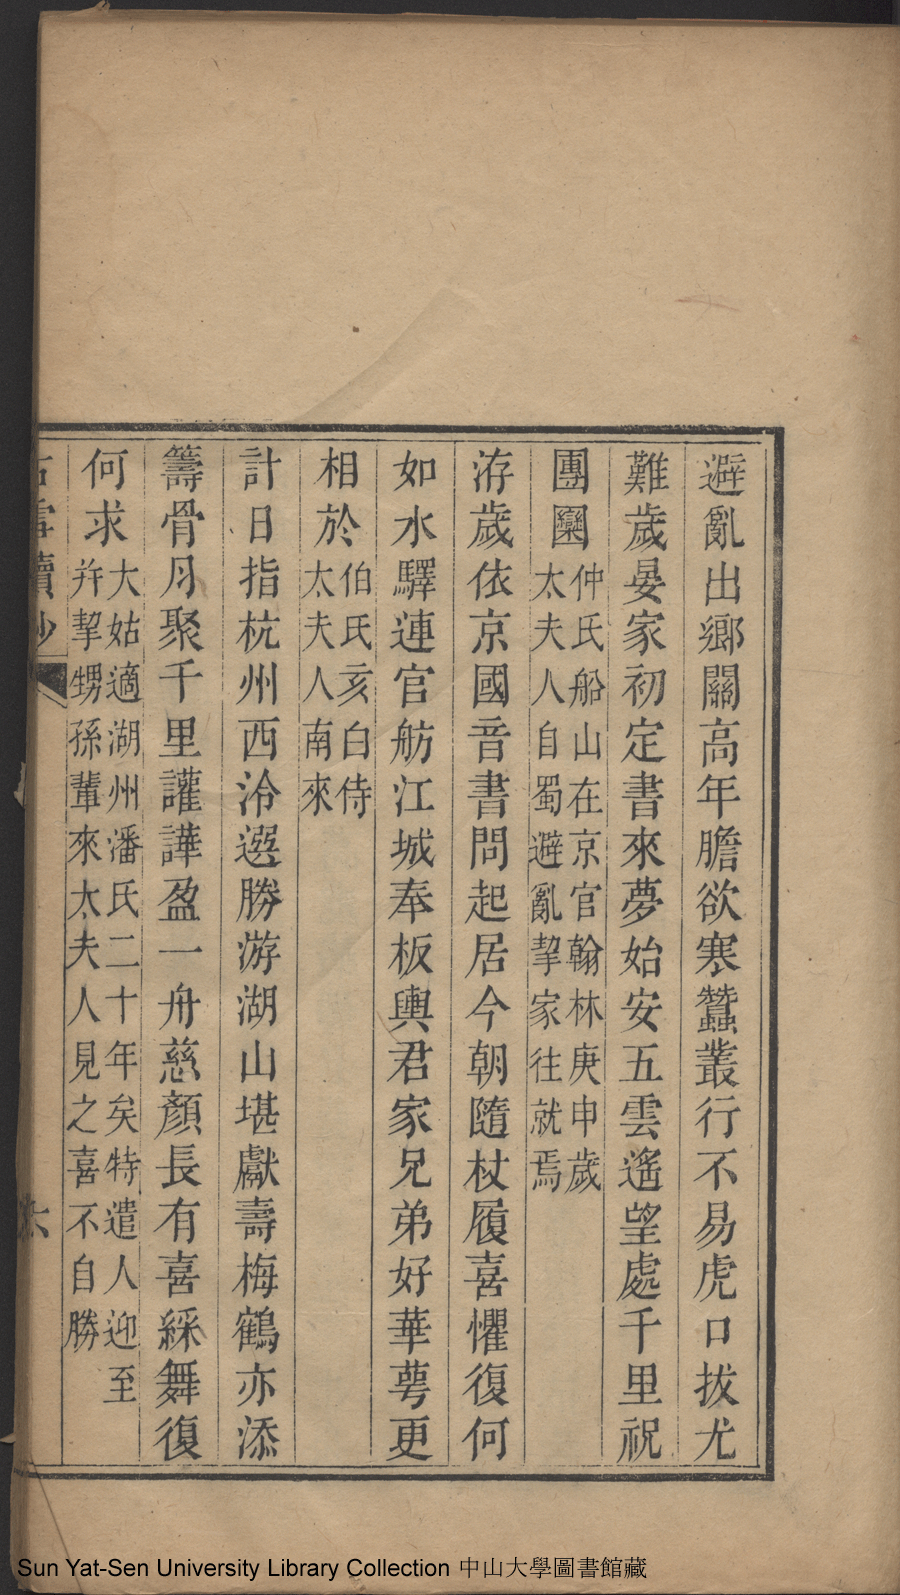 避亂出鄉關高年膽欲寒蠶叢行不易虎口拔尤
難歲晏家初定書來夢始安五雲遙望處千里祝
團圞仲氏船山在京官翰林庚申歲
太夫人自蜀避亂挈家往就焉
洊歲依京國音書問起居今朝隨杖履喜懼復何
如水驛連官舫江城奉板輿君家兄弟好華萼更
相於伯氏亥白侍
太夫人南來
計日指杭州西泠選勝游湖山堪獻壽梅鶴亦添
籌骨月聚千里讙譁盈一舟慈顏長有喜綵舞復
何求大姑適湖州潘氏二十年矣特遣人迎至
幷挈甥孫輩來太夫人見之喜不自勝
Sun Yat-Sen University Library Collection 中山大學圖書館藏